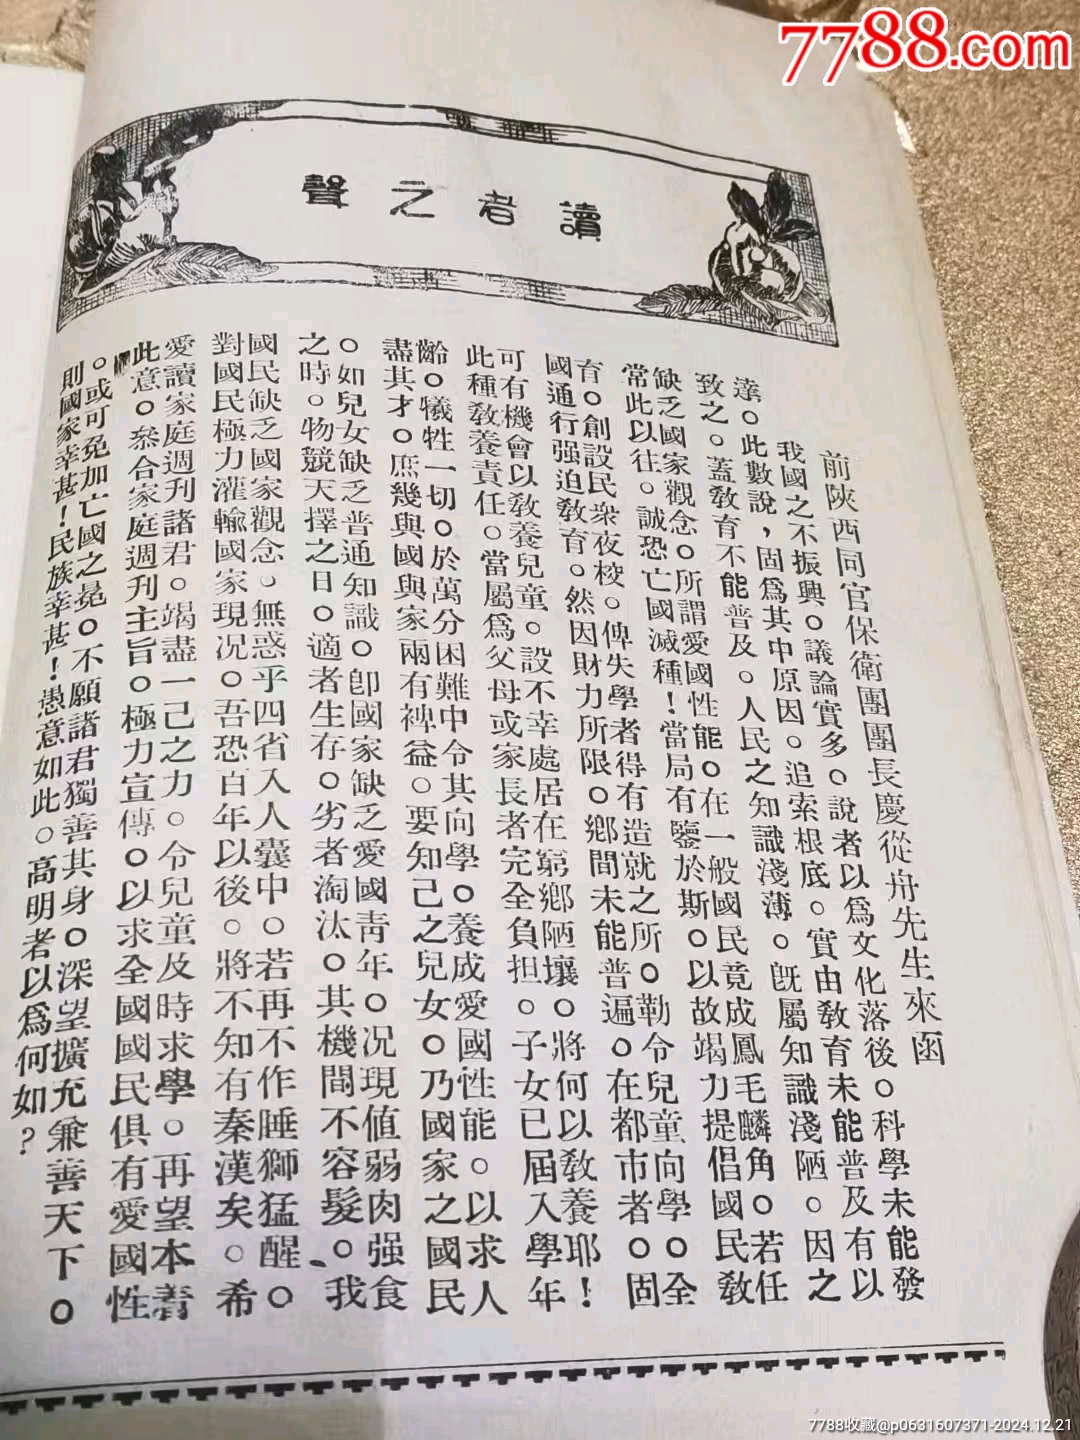 7788.com
讀者之聲
前陝西同官保衛團團長慶從舟先生來函
我國之不振興。議論實多。說者以爲文化落後。科學未能發
達。此數說，固爲其中原因。追索根底。實由敎育未能普及有以
致之。蓋敎育不能普及。人民之知識淺薄。旣屬知識淺陋。因之
缺乏國家觀念。所謂愛國性能。在一般國民竟成鳳毛麟角。若任
常此以往。誠恐亡國滅種！當局有鑒於斯。以故竭力提倡國民敎
育。創設民衆夜校。俾失學者得有造就之所。勒令兒童向學。全
國通行强迫敎育。然因財力所限。鄉間未能普遍。在都市者。固
可有機會以敎養兒童。設不幸處居在窮鄉陋壤。將何以敎養耶！
此種敎養責任。當屬爲父母或家長者完全負担。子女已屆入學年
齡。犧牲一切。於萬分困難中令其向學。養成愛國性能。以求人
盡其才。庶幾與國與家兩有裨益。要知己之兒女。乃國家之國民
。如兒女缺乏普通知識。卽國家缺乏愛國靑年。况現値弱肉强食
之時。物競天擇之日。適者生存。劣者淘汰。其機間不容髮。我
國民缺乏國家觀念。無惑乎四省入人囊中。若再不作睡獅猛醒。
對國民極力灌輸國家現况。吾恐百年以後。將不知有秦漢矣。希
愛讀家庭週刊諸君。竭盡一己之力。令兒童及時求學。再望本着
此意。叅合家庭週刊主旨。極力宣傳。以求全國國民俱有愛國性
。或可免加亡國之冕。不願諸君獨善其身。深望擴充兼善天下。
則國家幸甚！民族幸甚！愚意如此。高明者以爲何如？
7788收藏@p0631607371-2024.12.21